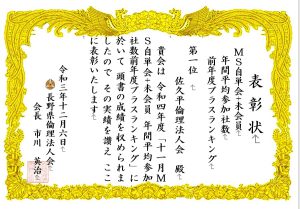 表彰状
MS自単会+未会員
年間平均参加社数
前年度プラスランキング
第一位
佐久平倫理法人会 殿
貴会は 令和四年度「十一月M
S自単会+未会員 年間平均参加
社数前年度プラスランキング」に
於いて 頭書の成績を収められま
したので その実績を讃え ここ
に表彰いたします
令和三年十二月六日
長野県倫理法人会
会長 市川 英治